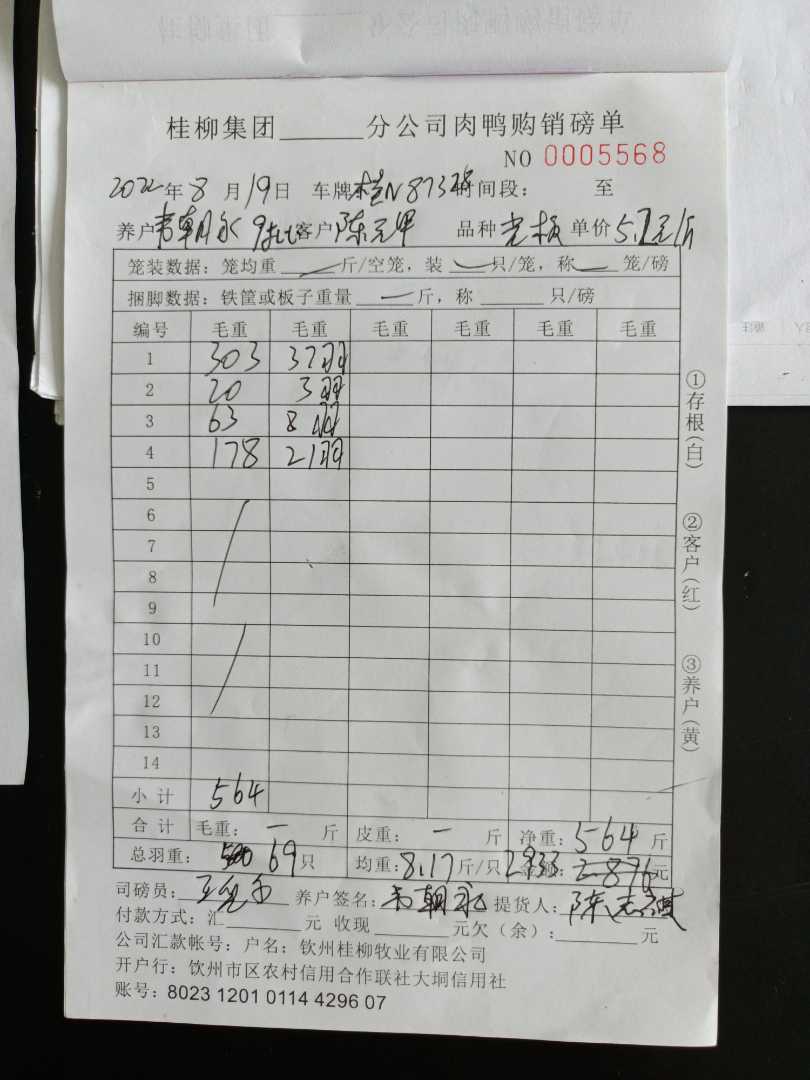 桂柳集团______分公司肉鸭购销磅单
NO 0005568
2022年8月19日 车牌桂N873 时间段: 至
养户韦朝永 9批 客户陈元甲 品种 单价5.2元/斤
笼装数据: 笼均重____斤/空笼, 装____只/笼, 称____笼/磅
捆脚数据: 铁筐或板子重量____斤, 称____只/磅
编号 毛重 毛重 毛重 毛重 毛重 毛重
1 303 37羽
2 20 3羽
3 63 8羽
4 178 21羽
5
6
7
8
9
10
11
12
13
14
小计 564
合计 毛重: 一 斤 皮重: 一 斤 净重: 564 斤
总羽重: 69只 均重: 8.17斤/只 2933 金额: 2876元
司磅员: 养户签名: 韦朝永 提货人: 陈
付款方式: 汇______元 收现______元欠(余):______元
公司汇款帐号: 户名: 钦州桂柳牧业有限公司
开户行: 钦州市区农村信用合作联社大垌信用社
账号: 8023 1201 0114 4296 07
①存根(白)
②客户(红)
③养户(黄)